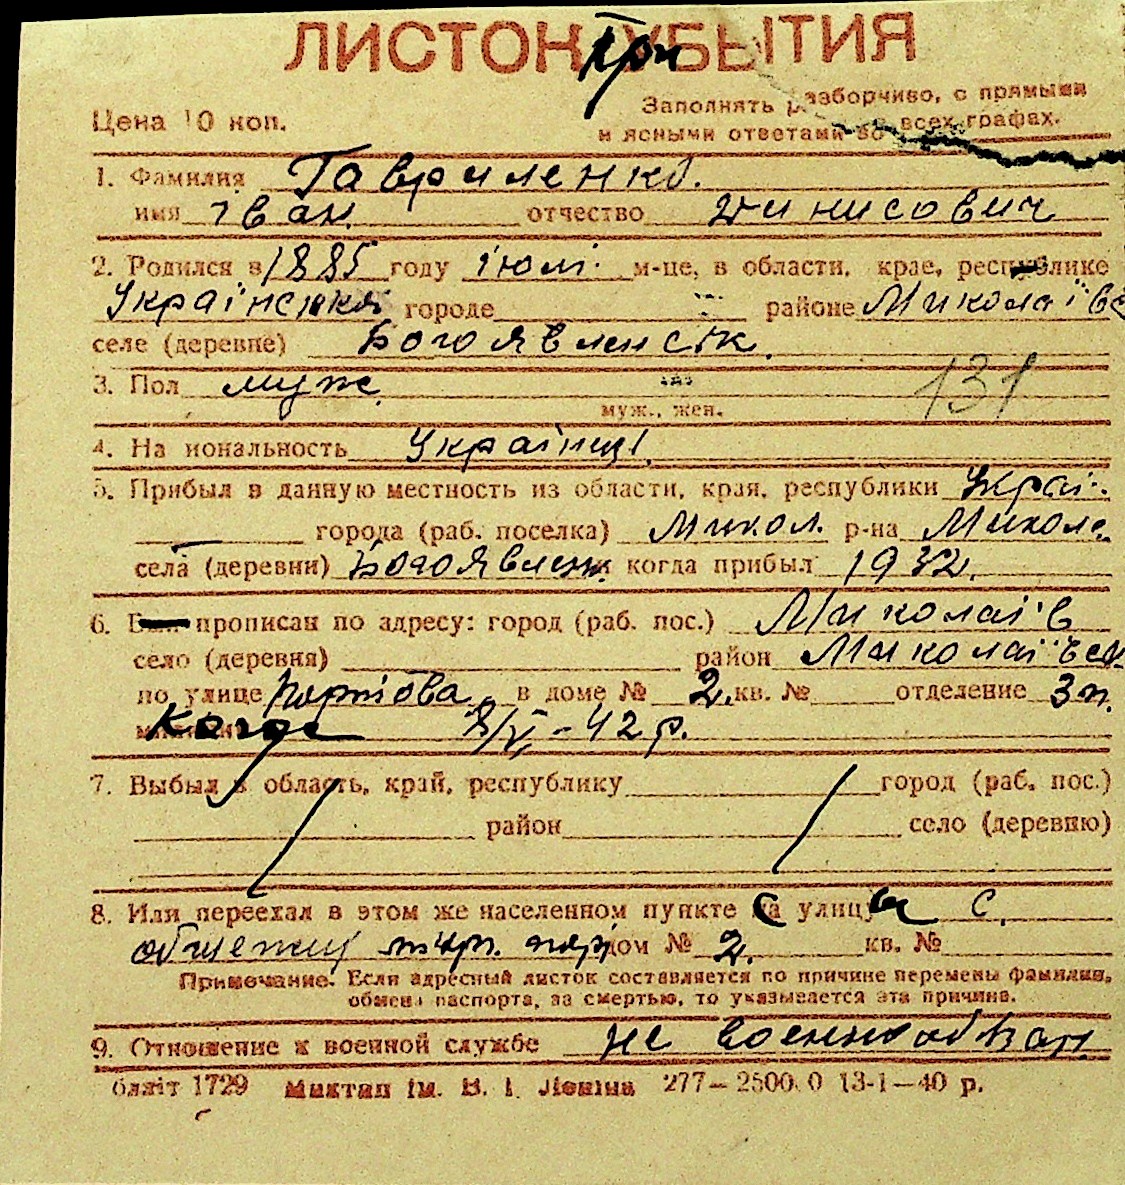 ЛИСТОК УБЫТИЯ
При
Цена 10 коп.
Заполнять разборчиво, с прямыми
и ясными ответами во всех графах.
1. Фамилия Гавриленко.
имя Іван. отчество Динисович
2. Родился в 1885 году Іюлі. м-це, в области, крае, республике
Українська городе районе Миколаївс
селе (деревне) Богоявленськ.
3. Пол муже
муж., жен.
131
4. Национальность Українці.
5. Прибыл в данную местность из области, края, республики Украї.
города (раб. поселка) Микол. р-на Микола.
села (деревни) Богоявленк когда прибыл 1932.
6. прописан по адресу: город (раб. пос.) Миколаїв
село (деревня) район Миколаївськ
по улице Портова в доме № 2. кв. № отделение 3 п.
Когда 8/V-42 р.
7. Выбыл в область, край, республику город (раб. пос.)
район село (деревню)
8. Или переехал в этом же населенном пункте с улицы С.
дом № 2. кв. №
Примечание. Если адресный листок составляется по причине перемены фамилии,
обмена паспорта, за смертью, то указывается эта причина.
9. Отношение к военной службе не военнообязан
бліят 1729 Миктип ім. В. І. Леніна 277—2500.0 13-1—40 р.